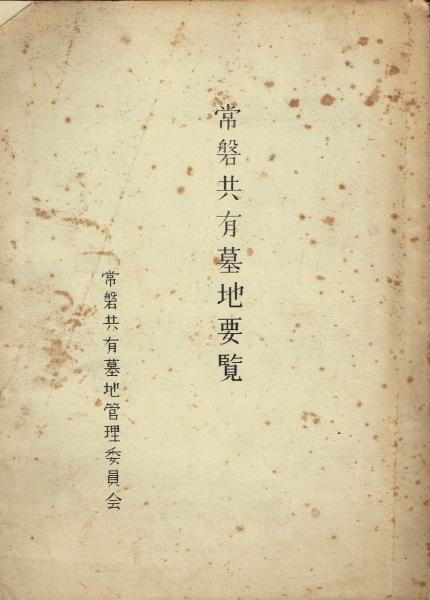 常磐共有墓地要覧
常磐共有墓地管理委員会